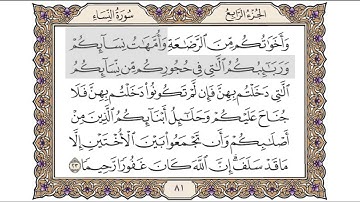 الجزء الرابع
سورة النساء
وَأَخَوَٰتُكُم مِّنَ ٱلرَّضَٰعَةِ وَأُمَّهَٰتُ نِسَآئِكُمْ
وَرَبَٰٓئِبُكُمُ ٱلَّٰتِى فِى حُجُورِكُم مِّن نِّسَآئِكُمُ
ٱلَّٰتِى دَخَلْتُم بِهِنَّ فَإِن لَّمْ تَكُونُوا۟ دَخَلْتُم بِهِنَّ فَلَا
جُنَاحَ عَلَيْكُمْ وَحَلَٰٓئِلُ أَبْنَآئِكُمُ ٱلَّذِينَ مِنْ
أَصْلَٰبِكُمْ وَأَن تَجْمَعُوا۟ بَيْنَ ٱلْأُخْتَيْنِ إِلَّا
مَا قَدْ سَلَفَ ۗ إِنَّ ٱللَّهَ كَانَ غَفُورًا رَّحِيمًا ٢٣
٨١